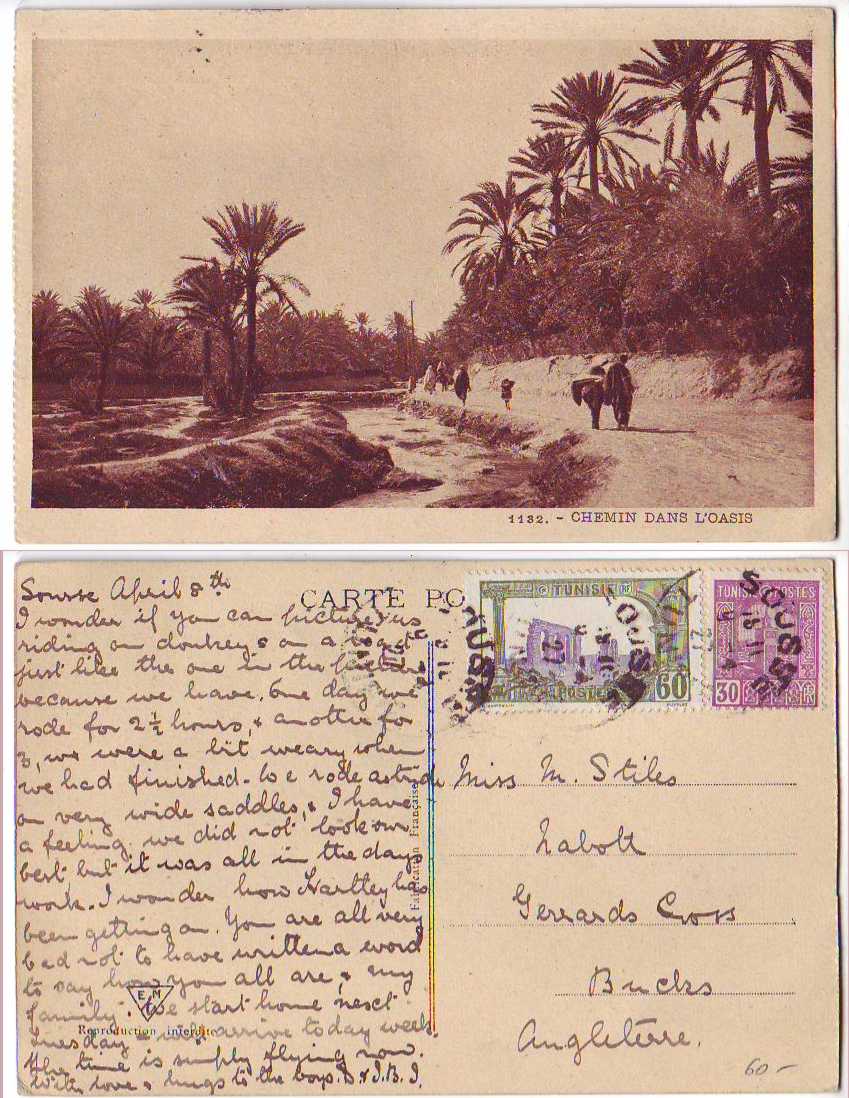 1132. - CHEMIN DANS L'OASIS
CARTE PO
Sousse April 8th
I wonder if you can picture us
riding on donkeys on a road
just like the one in the picture
because we have. One day we
rode for 2½ hours, & another for
3, we were a bit weary when
we had finished. We rode astride
on very wide saddles, & I have
a feeling we did not look our
best but it was all in the days
work. I wonder how Hartley has
been getting on. You are all very
bad not to have written a word
to say how you all are, & my
family. We start home next
Tuesday & will arrive today week.
the time is simply flying now.
With love & hugs to the boys. D & J.B.J.
EM
Reproduction interdite
Fabrication Française
TUNISIE RF
POSTES
60
TUNISIE POSTES
30 RF
SOUSSE
Miss M. Stiles
Nabolt
Gerrards Cross
Bucks
Angleterre.
60-